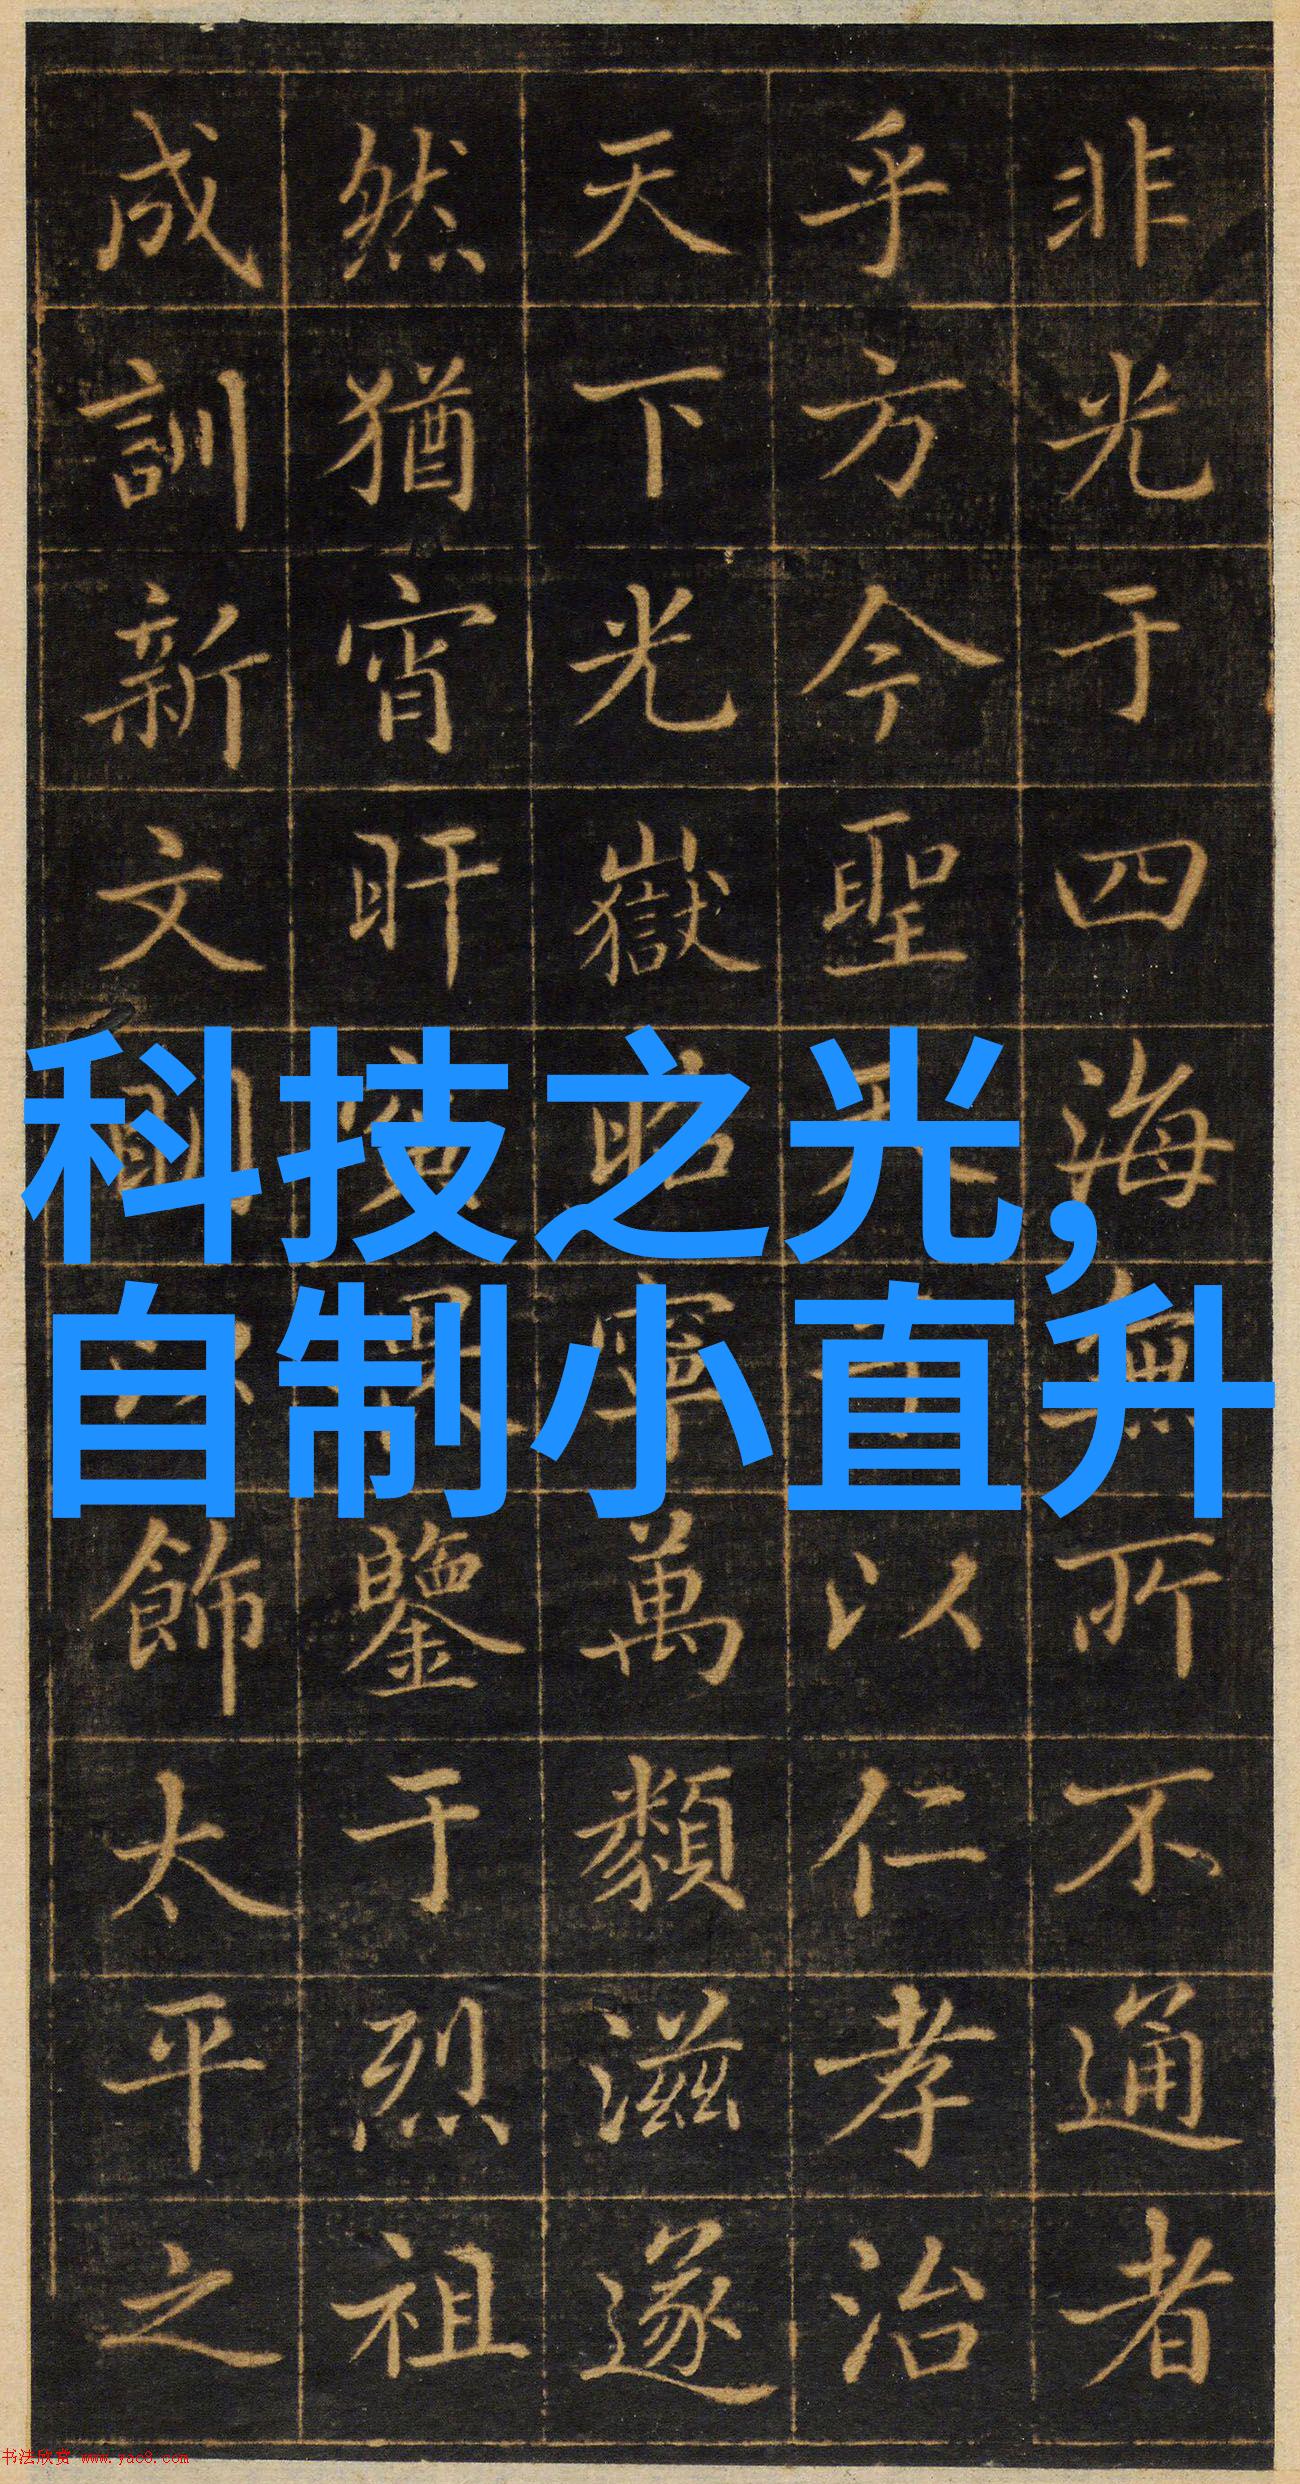 非光于四海無所不通者
乎方今聖天子以仁孝治
天下光嶽昭寧萬類滋遂
然猶宵旰寅畏鑒于烈祖
成訓新文以飾太平之
科技之光,
自制小直升
书法欣赏 www.yac8.com